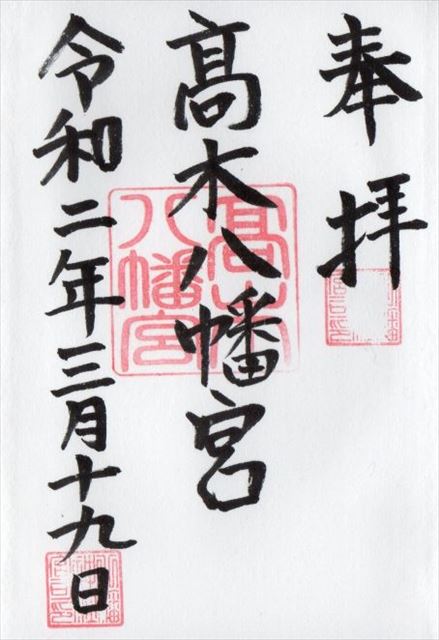 奉拝
髙木八幡宮
令和二年三月十九日
髙木八幡宮